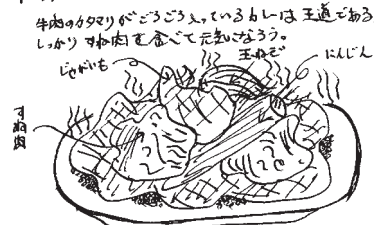 牛肉のカタマリがごろごろ入っているカレーは王道である
しっかりすね肉を食べて元気になろう。
じゃがいも
玉ねぎ
にんじん
すね肉